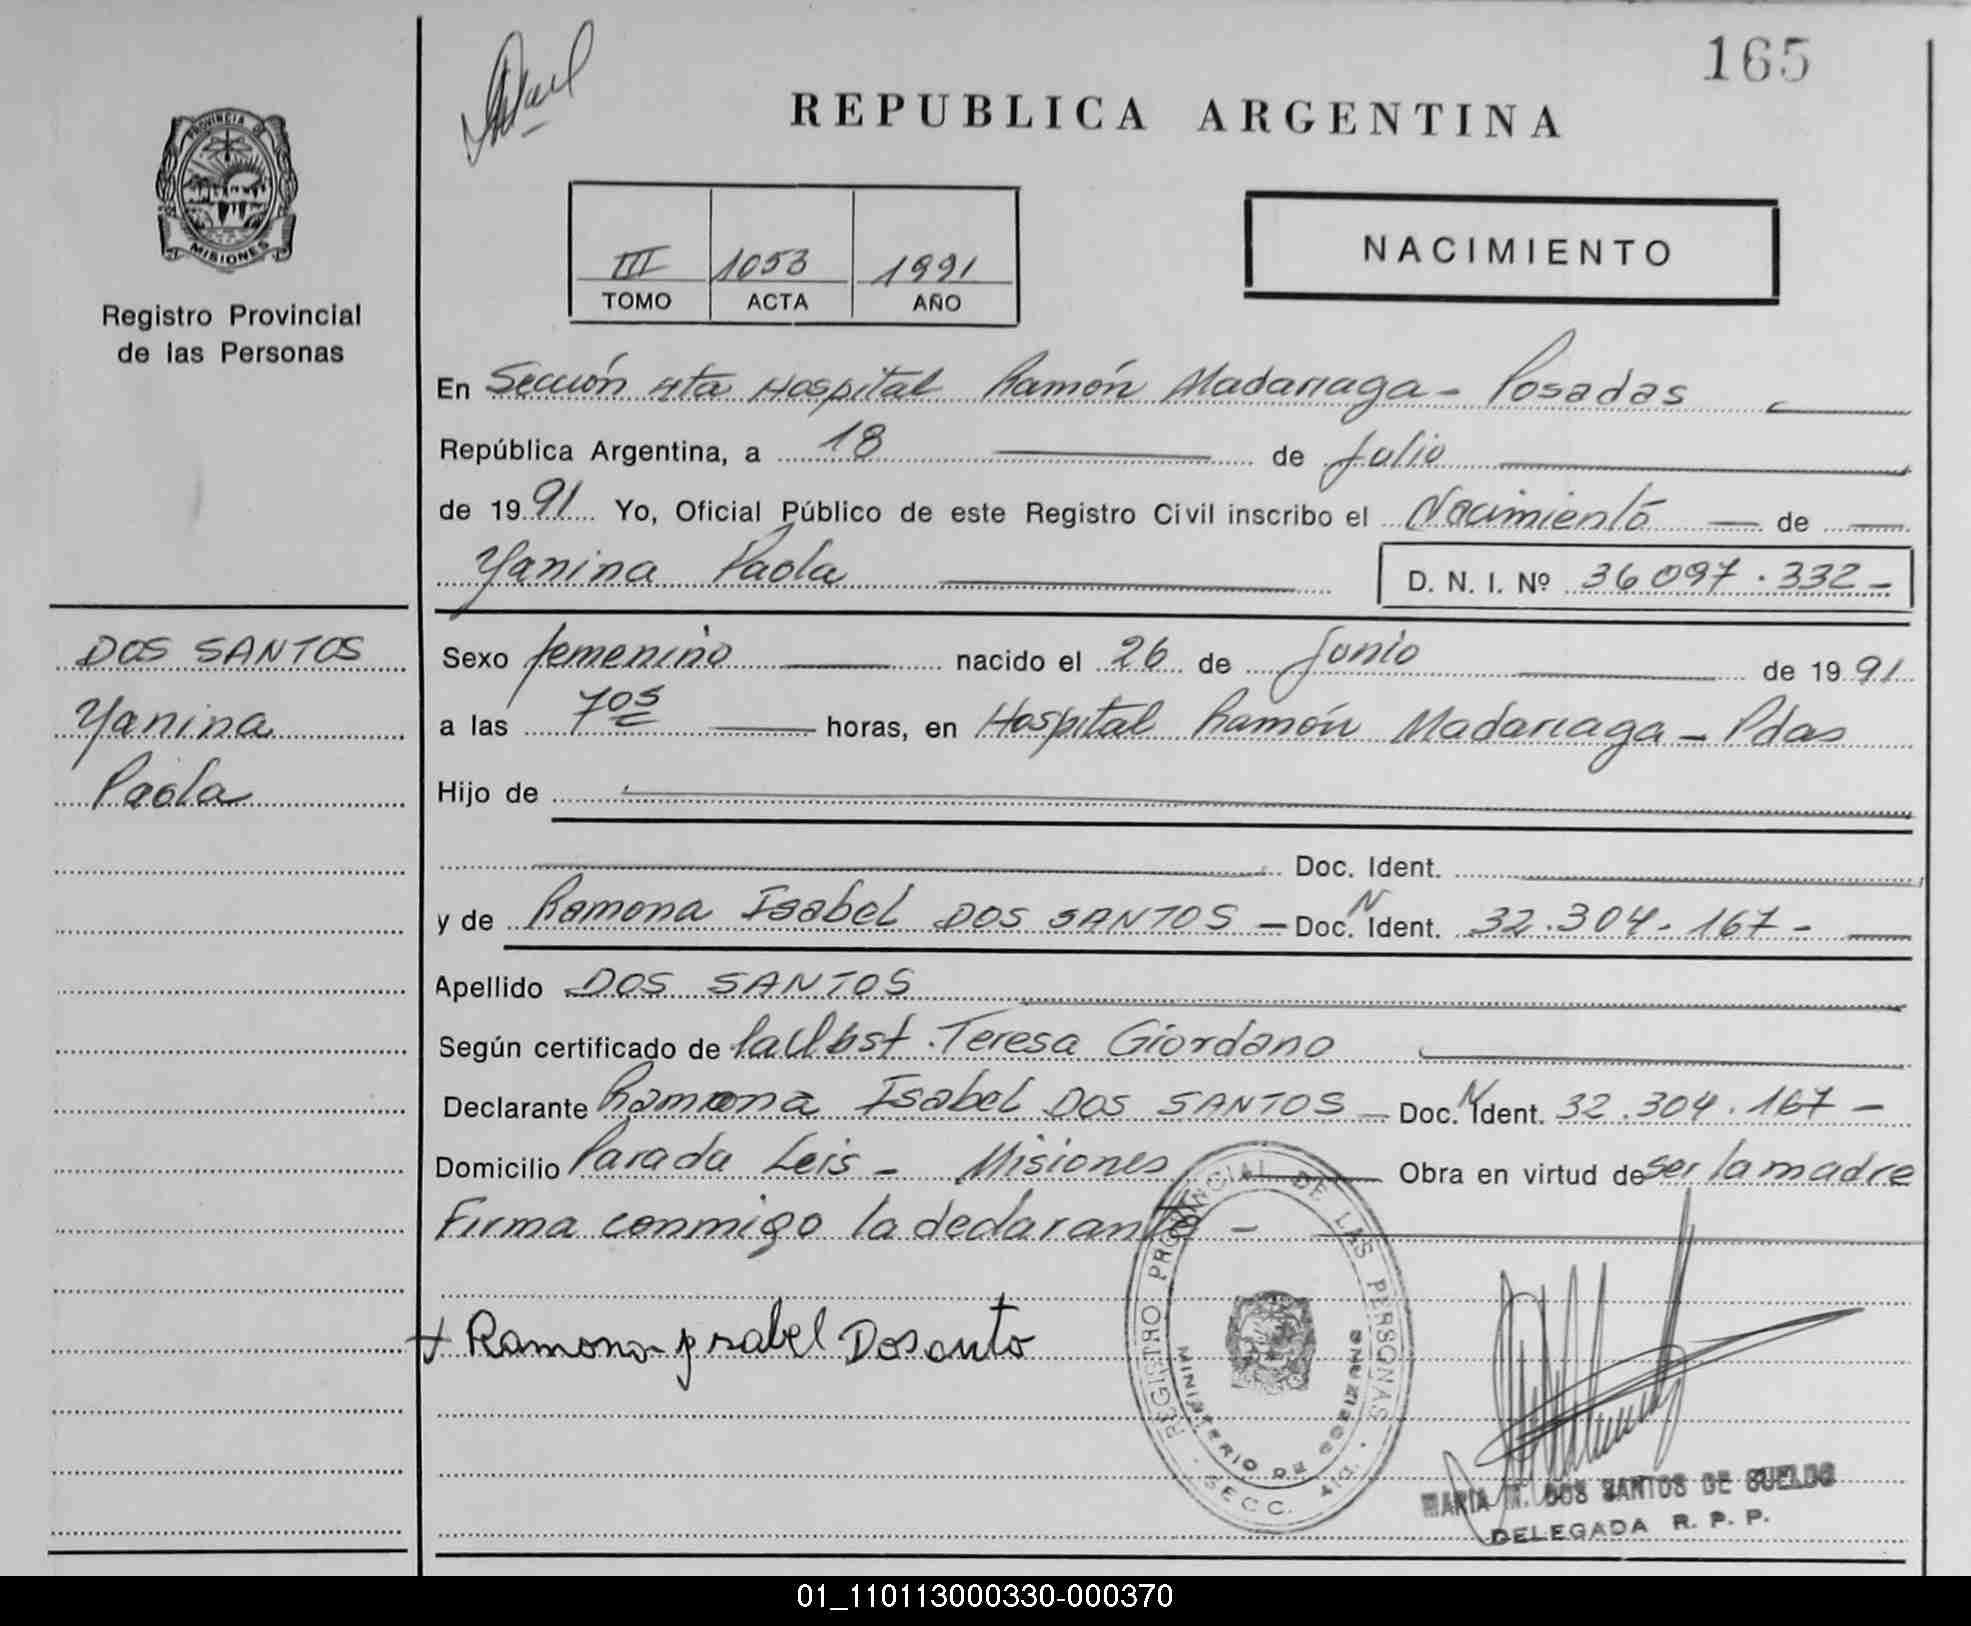 165
REPUBLICA ARGENTINA
PROVINCIA DE
MISIONES
Registro Provincial
de las Personas
III 1053 1991
TOMO ACTA AÑO
NACIMIENTO
En Sección 4ta Hospital Ramón Madariaga - Posadas
República Argentina, a 18 de Julio
de 1991 Yo, Oficial Público de este Registro Civil inscribo el Nacimiento de
Yanina Paola D. N. I. Nº 36 097.332-
DOS SANTOS
Yanina
Paola
Sexo femenino nacido el 26 de Junio de 1991
a las 7 05 horas, en Hospital Ramón Madariaga - Pdas
Hijo de
Doc. Ident.
y de Ramona Isabel DOS SANTOS - Doc. N Ident. 32.304.167-
Apellido DOS SANTOS
Según certificado de la Obst. Teresa Giordano
Declarante Ramona Isabel DOS SANTOS - Doc. N Ident. 32.304.167-
Domicilio Parada Leis - Misiones Obra en virtud de ser la madre
Firma conmigo la declarante -
+ Ramona ysabel Dosanto
REGISTRO PROVINCIAL DE LAS PERSONAS
MINISTERIO DE
SECC. 4ta.
MARIA DOS SANTOS DE SUELDO
DELEGADA R. P. P.
01_110113000330-000370